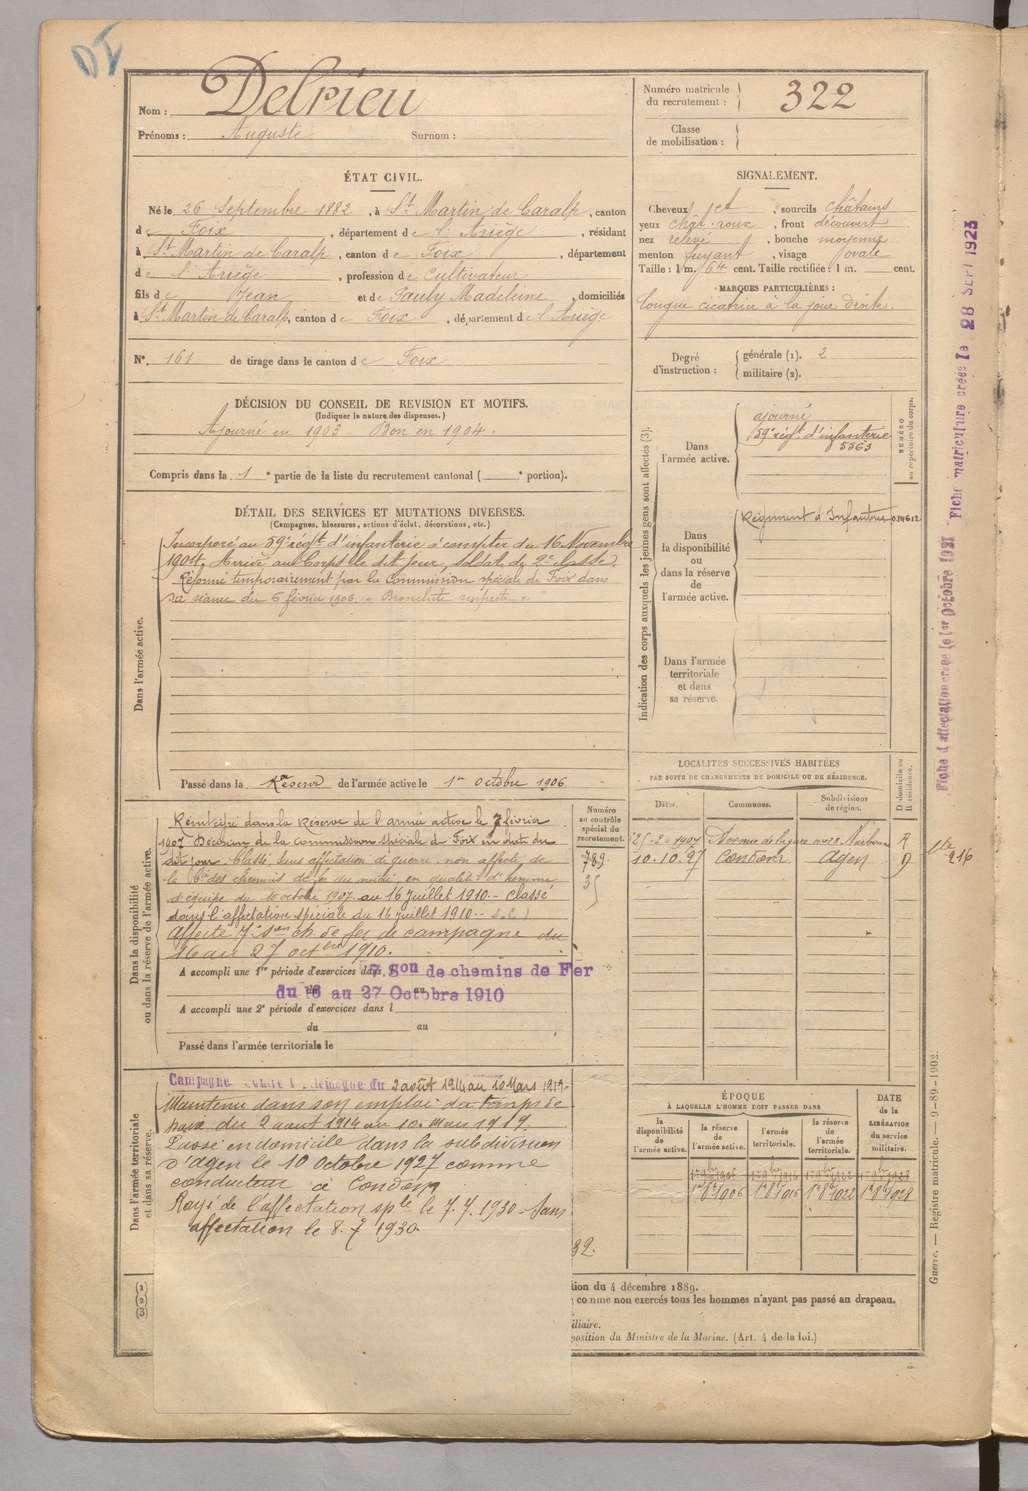 DI
Nom : Delrieu
Prénoms : Auguste Surnom :
Numéro matricule du recrutement : 322
Classe de mobilisation :
ÉTAT CIVIL.
Né le 26 Septembre 1882, à St Martin de Caralp, canton
de Foix, département de l'Ariège, résidant
à St Martin de Caralp, canton de Foix, département
de l'Ariège, profession de Cultivateur
fils de Jean et de Pauly Madeleine, domiciliés
à St Martin de Caralp, canton de Foix, département de l'Ariège
N°. 161 de tirage dans le canton de Foix
SIGNALEMENT.
Cheveux et, sourcils châtains
yeux chât. roux, front découvert
nez relevé, bouche moyenne
menton fuyant, visage ovale
Taille : 1 m. 64 cent. Taille rectifiée : 1 m. cent.
MARQUES PARTICULIÈRES :
longue cicatrice à la joue droite.
Degré d'instruction : générale (1). 2
militaire (2).
DÉCISION DU CONSEIL DE REVISION ET MOTIFS.
(Indiquer la nature des dispenses.)
Ajourné en 1903 - Bon en 1904.
Compris dans la 1e partie de la liste du recrutement cantonal ( e portion).
DÉTAIL DES SERVICES ET MUTATIONS DIVERSES.
(Campagnes, blessures, actions d'éclat, décorations, etc.)
Dans l'armée active.
Incorporé au 59e régt d'infanterie à compter du 16 Novembre
1904. Arrivé au Corps le dit jour, soldat de 2e classe.
Réformé temporairement par la Commission spéciale de Foix dans
sa séance du 6 février 1906. " Bronchite suspecte "
Passé dans la Réserve de l'armée active le 1er octobre 1906
Indication des corps auxquels les jeunes gens sont affectés (3).
Dans l'armée active.
ajourné
59e régt d'infanterie
5563
NUMÉRO au répertoire du corps.
Dans la disponibilité ou dans la réserve de l'armée active.
Régiment d'Infanterie
Dans l'armée territoriale et dans sa réserve.
LOCALITÉS SUCCESSIVES HABITÉES
PAR SUITE DE CHANGEMENTS DE DOMICILE OU DE RÉSIDENCE.
Dates. Communes. Subdivisions de région. D domicile ou R résidence.
Narbonne R
10.10.27 Condom Agen D
216
Dans la disponibilité ou dans la réserve de l'armée active.
Numéro au contrôle spécial du recrutement.
789
35
Réintégré dans la Réserve de l'armée active le 7 février
1907 Décision de la commission spéciale de Foix en date du
dit jour. Classé sans affectation de guerre, non affecté de
la Cie des chemins de fer du midi, en qualité d'homme
d'équipe du 10 octobre 1907 au 16 juillet 1910 - classé
dans l'affectation spéciale du 16 juillet 1910
Affecté 7e Son ch. de fer de campagne du
16 au 27 octbre 1910.
A accompli une 1re période d'exercices dans 7.Son de chemins de Fer
du 16 au 27 Octobre 1910
A accompli une 2e période d'exercices dans l
du au
Passé dans l'armée territoriale le
Dans l'armée territoriale et dans sa réserve.
Campagne contre l'Allemagne du 2 août 1914 au 10 Mars 1919
Maintenu dans son emploi du temps de
paix du 2 août 1914 au 10 Mars 1919.
Passé en domicile dans la subdivision
d'Agen le 10 Octobre 1927 comme
conducteur à Condom
Rayé de l'affectation sple le 7.7.1930 - Sans
affectation le 8.7 1930.
ÉPOQUE
À LAQUELLE L'HOMME DOIT PASSER DANS
la disponibilité de l'armée active. la réserve de l'armée active. l'armée territoriale. la réserve de l'armée territoriale.
DATE de la LIBÉRATION du service militaire.
1er 8bre 1906 1er 8bre 1916 1er 8bre 1922 1er 8bre 1928
32.
(1)
(2)
(3)
tion du 4 décembre 1889.
comme non exercés tous les hommes n'ayant pas passé au drapeau.
iliaire.
position du Ministre de la Marine. (Art. 4 de la loi.)
Guerre. — Registre matricule. — 9-89-1902.
Fiche d'affectation créée le 1er Octobre 1921
Fiche matriculaire créée le 28 SEPT 1923